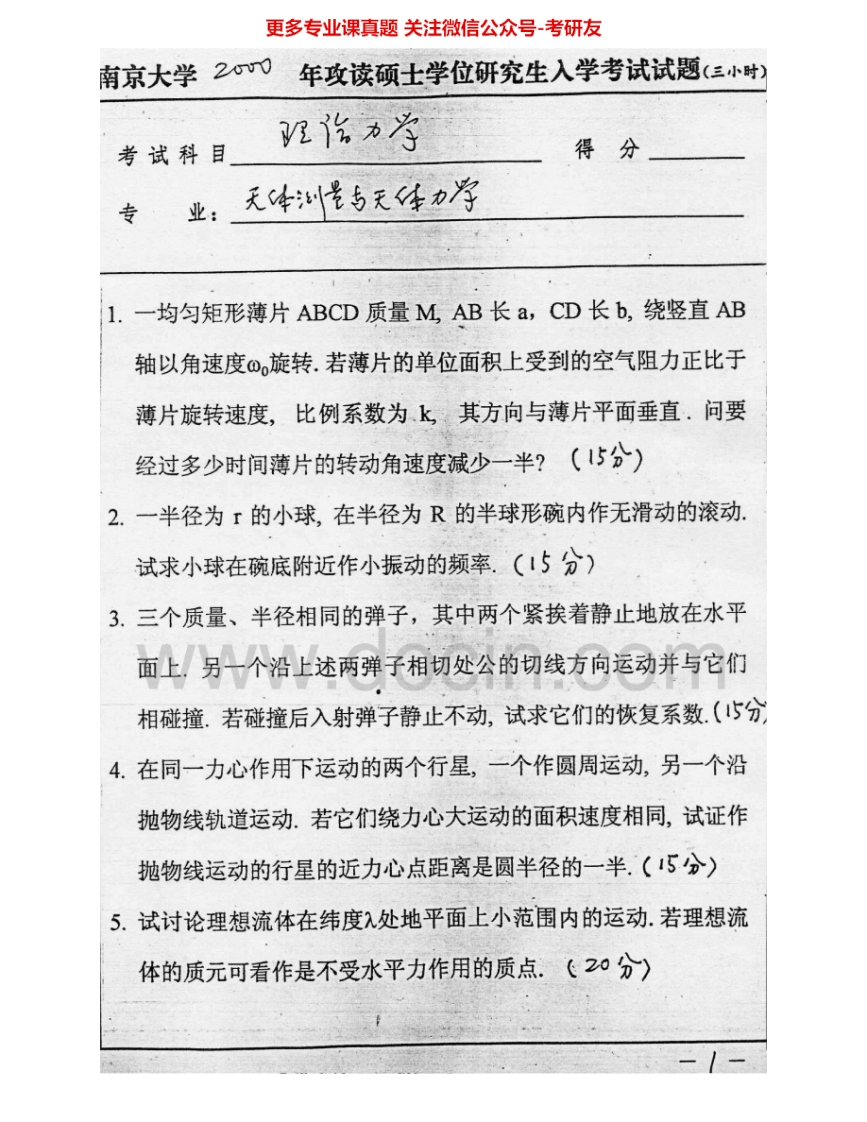 更多专业课真题 关注微信公众号-考研友
南京大学 2000 年攻读硕士学位研究生入学考试试题(三小时)
考试科目 理论力学 得 分
专 业: 天体测量与天体力学
1. 一均匀矩形薄片 ABCD 质量 M, AB 长 a，CD 长 b, 绕竖直 AB
轴以角速度ω₀旋转. 若薄片的单位面积上受到的空气阻力正比于
薄片旋转速度, 比例系数为 k, 其方向与薄片平面垂直. 问要
经过多少时间薄片的转动角速度减少一半? (15分)
2. 一半径为 r 的小球, 在半径为 R 的半球形碗内作无滑动的滚动.
试求小球在碗底附近作小振动的频率. (15分)
3. 三个质量、半径相同的弹子，其中两个紧挨着静止地放在水平
面上. 另一个沿上述两弹子相切处公的切线方向运动并与它们
相碰撞. 若碰撞后入射弹子静止不动, 试求它们的恢复系数. (15分)
www.docin.com
4. 在同一力心作用下运动的两个行星, 一个作圆周运动, 另一个沿
抛物线轨道运动. 若它们绕力心大运动的面积速度相同, 试证作
抛物线运动的行星的近力心点距离是圆半径的一半. (15分)
5. 试讨论理想流体在纬度λ处地平面上小范围内的运动. 若理想流
体的质元可看作是不受水平力作用的质点. (20分)
-1-